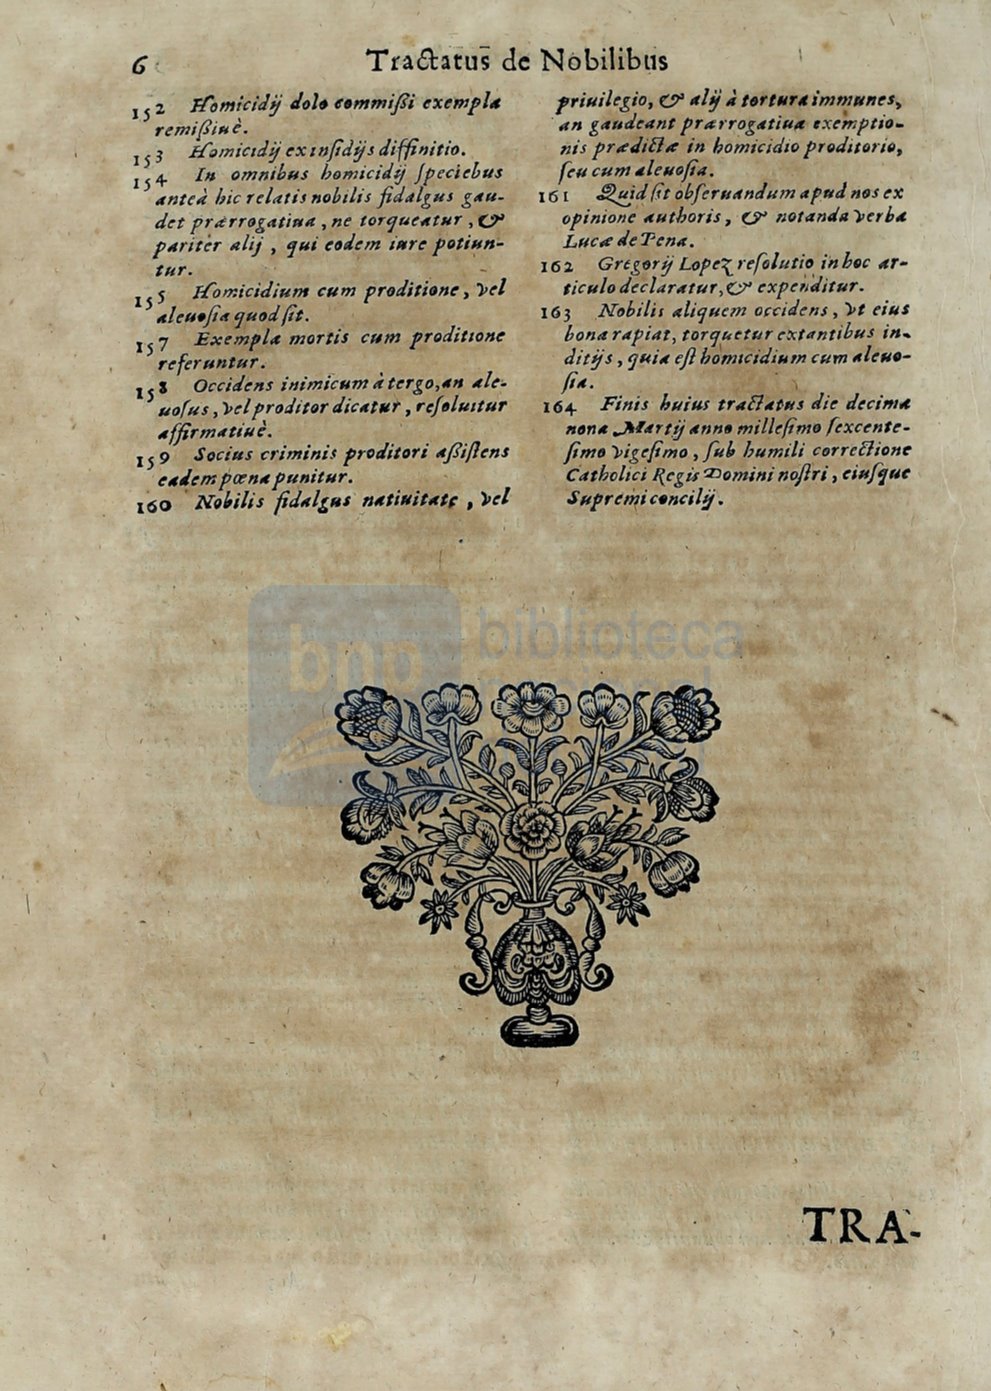 6 Tractatus de Nobilibus
152 Homicidij dolo commißi exempla
remißiuè.
153 Homicidij ex insidijs diffinitio.
154 In omnibus homicidij speciebus
anteà hic relatis nobilis fidalgus gau-
det prærrogatiua, ne torqueatur, &
pariter alij, qui eodem iure potiun-
tur.
155 Homicidium cum proditione, vel
aleuosia quod sit.
157 Exempla mortis cum proditione
referuntur.
158 Occidens inimicum à tergo, an ale-
uosus, vel proditor dicatur, resoluitur
affirmatiuè.
159 Socius criminis proditori aßistens
eadem pœna punitur.
160 Nobilis fidalgus natiuitate, vel
priuilegio, & alij à tortura immunes,
an gaudeant prærrogatiua exemptio-
nis prædictæ in homicidio proditorio,
seu cum aleuosia.
161 Quid sit obseruandum apud nos ex
opinione authoris, & notanda verba
Lucæ de Pena.
162 Gregorij Lopez resolutio in hoc ar-
ticulo declaratur, & expenditur.
163 Nobilis aliquem occidens, vt eius
bona rapiat, torquetur extantibus in-
ditijs, quia est homicidium cum aleuo-
sia.
164 Finis huius tractatus die decima
nona Martij anno millesimo sexcente-
simo vigesimo, sub humili correctione
Catholici Regis Domini nostri, eiusque
Supremi concilij.
bnp biblioteca
TRA-